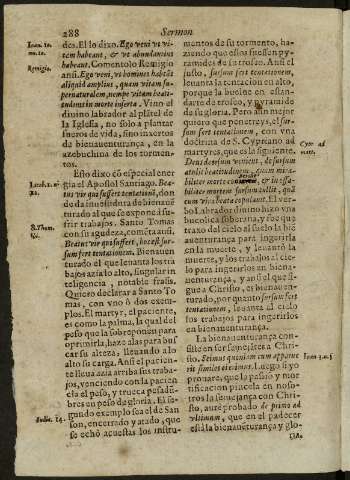 288 Sermon
Ioan. 10.
nu. 10.
des. El lo dixo. Ego veni vt vi-
tam habeant, & vt abundantius
habeant. Comentolo Remigio
Remigio.
ansi. Ego veni, vt homines habeãt
aliquid amplius, quam vitam su-
pernaturalem, nempe vitam beati-
tudinis in morte inserta. Vino el
diuino labrador al plãtel de
la Iglesia, no solo a plantar
sueros de vida, sino inxertos
de bienauenturança, en la
azebuchina de los tormen-
tos.
Esto dixo cõ especial ener-
gia el Apostol Santiago. Bea-
Iacob. 1. nu.
12.
tus vir qui suffert tentationẽ, don
de da inuestidura de bienauẽ
turado al que se expone a su-
frir trabajos. Santo Tomas
S. Thom.
ibi.
con su agudeza, comẽta ansi.
Beatus vir qui suffert, hoc est sur-
sum fert tentationem. Bienauen
turado el que leuanta los tra
bajos azia lo alto, singular in
teligencia, notable frasis.
Quiero declarar a Santo To
mas, con vno ò dos exem-
plos. El martyr, el paciente,
es como la palma, la qual del
peso que la sobreponen para
oprimirla, haze alas para bus
car su alteza, lleuando a lo
alto su carga. Ansi el pacien-
te lleua azia arriba sus traba-
jos, venciendo con la pacien
cia el peso, y trueca pesadũ-
bres en peso de gloria. El se-
gundo exemplo sea el de San
Iudic. 14.
son, encerrado y atado, que
se echò acuestas los instru-
mentos de su tormento, ha-
ziendo que ellos fuessen py-
ramides de su trofeo. Ansi el
justo, sursum fert tentationem,
leuanta la tentacion en alto,
porque la buelue en estan-
darte de trofeo, y pyramide
de su gloria. Pero aun mejor
quiero que penetreys, el sur-
sum fert tentationem, con vna
doctrina de S. Cypriano ad
Cypr. ad
mart.
martyres, que es la siguiente.
Deus deorsum venient, de sursum
attulit beatitudinem, quam mira-
biliter morti, er ineffa-
biliter mortem sursum tulit, quã
cum viua beata copulauit. El ver-
bo Labrador diuino hizo vna
bucolica soberana, y fue que
traxo del cielo al suelo la biẽ
auenturança para ingerirla
en la muerte, y leuantò la
muerte, y los trabajos al cie-
lo para ingerirlos en biena-
uenturança, y ansi el que si-
gue a Christo, es bienauen-
turado, porquanto sursum fert
tentationem, leuanta al cielo
los trabajos para ingerirlos
en bienauenturança.
La bienauenturança con-
siste en ser semejãtes a Chri-
sto, Scimus quoniam cum apparue
Ioan 3. n. 2.
rit similes ei erimus. Luego si yo
prouare, que la passio y mor
tificacion pinzela en noso-
tros la semejança con Chri-
sto, aurè prouado de primo ad
vltimum, que en el padecer
està la bienauenturança y glo-
ria.